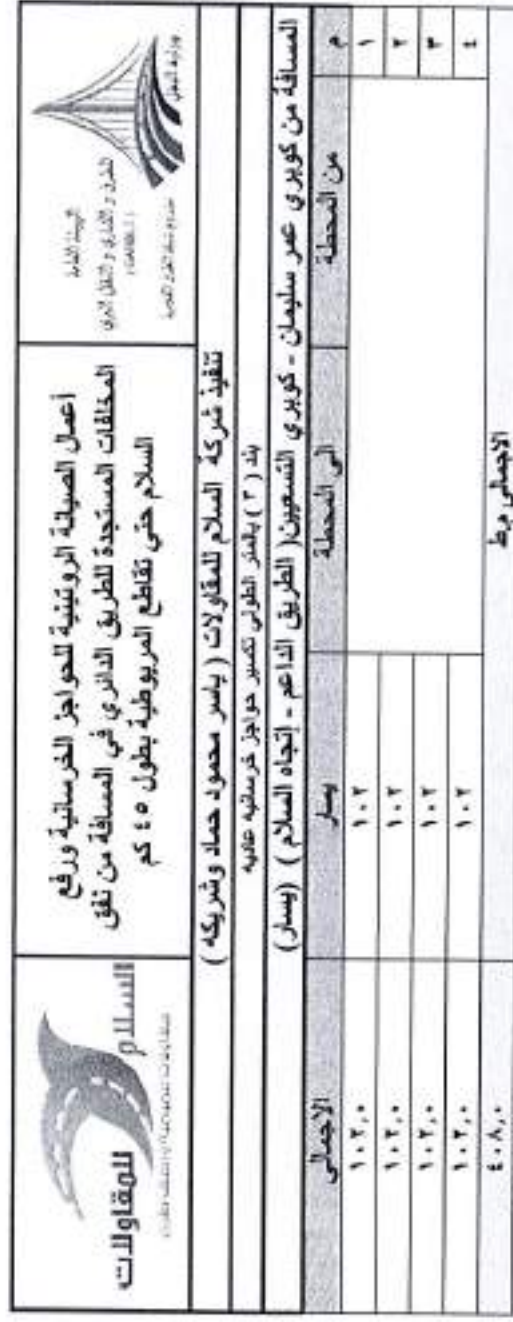 وزارة النقل
الهيئة العامة
للطرق و الكباري و النقل البري
(GARBLT)
أعمال الصيانة الروتينية للحواجز الخرسانية ورفع
المخلفات المستجدة للطريق الدائري في المسافة من نفق
السلام حتي تقاطع المريوطية بطول ٤٥ كم
السلام
للمقاولات
تنفيذ شركة السلام للمقاولات ( ياسر محمود حماد وشريكه )
بند ( ٣ ) بالمتر الطولي تكسير حواجز خرسانيه عاديه
المسافة من كوبري عمر سليمان - كوبري التسعين( الطريق الداعم - إتجاه السلام ) (يسار)
م من المحطة الى المحطة يسار الاجمالى
١ ١٠٢ ١٠٢,٠
٢ ١٠٢ ١٠٢,٠
٣ ١٠٢ ١٠٢,٠
٤ ١٠٢ ١٠٢,٠
الاجمالى م.ط ٤٠٨,٠